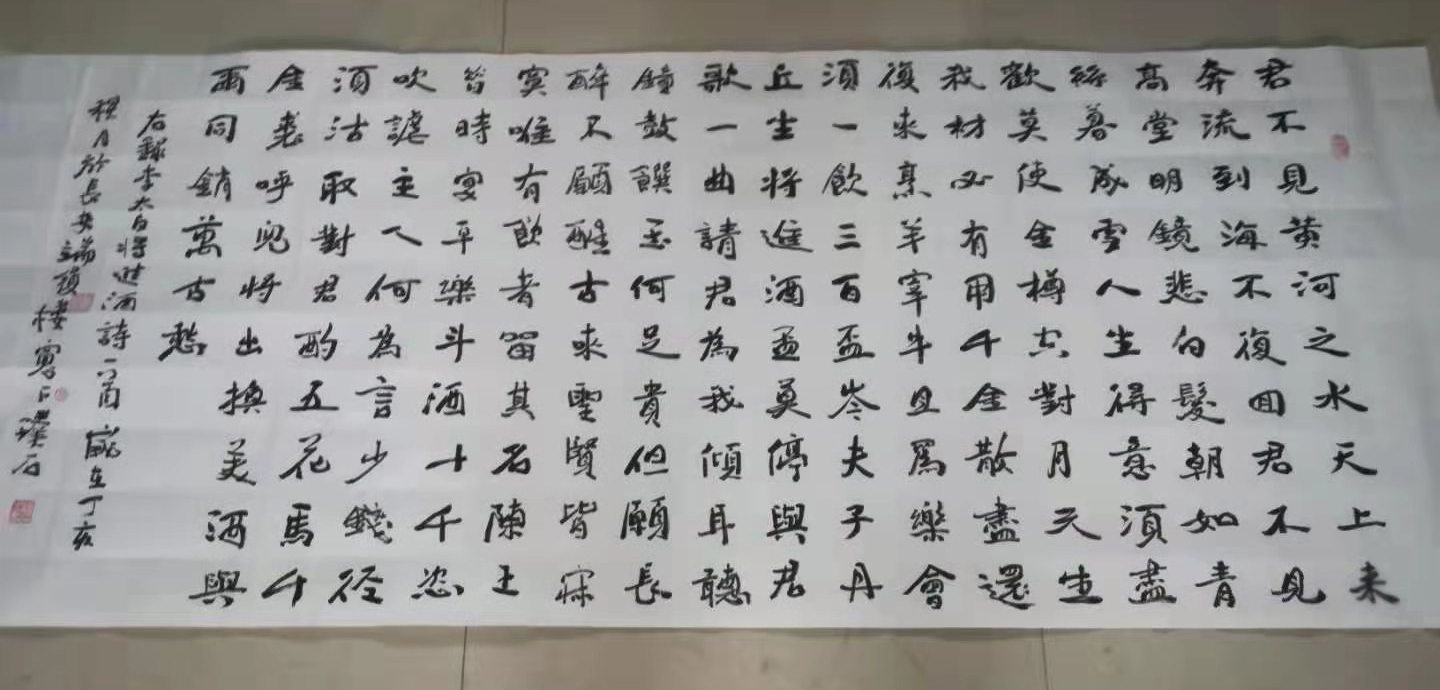 君不見黄河之水天上来
奔流到海不復回君不見
高堂明鏡悲白髮朝如青
絲暮成雪人生得意須盡
歡莫使金樽空對月天生
我材必有用千金散盡還
復来烹羊宰牛且為樂會
須一飲三百盃岑夫子丹
丘生將進酒盃莫停與君
歌一曲請君為我傾耳聽
鐘鼓饌玉何足貴但願長
醉不願醒古来聖賢皆寂
寞唯有飲者留其名陳王
昔時宴平樂斗酒十千恣
欢謔主人何為言少錢徑
須沽取對君酌五花馬千
金裘呼兒將出換美酒與
爾同銷萬古愁
右録李太白將進酒詩一首歲在丁亥
穐月於長安樓寫石